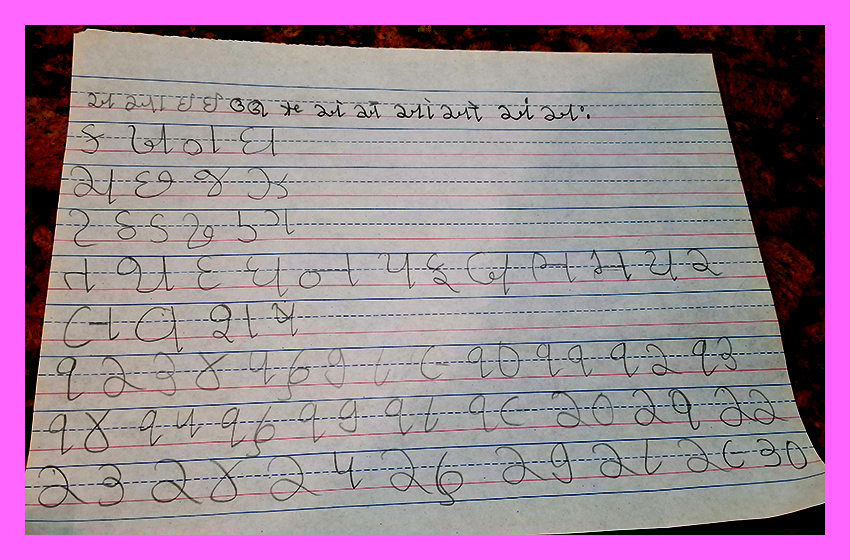 અ આ ઇ ઈ ઉ ઊ ઋ એ ઐ ઓ ઔ અં અઃ
ક ખ ગ ઘ
ચ છ જ ઝ
ટ ઠ ડ ઢ ણ
ત થ દ ધ ન પ ફ બ ભ મ ય ર
લ વ શ ષ
૧ ૨ ૩ ૪ ૫ ૬ ૭ ૮ ૯ ૧૦ ૧૧ ૧૨ ૧૩
૧૪ ૧૫ ૧૬ ૧૭ ૧૮ ૧૯ ૨૦ ૨૧ ૨૨
૨૩ ૨૪ ૨૫ ૨૬ ૨૭ ૨૮ ૨૯ ૩૦